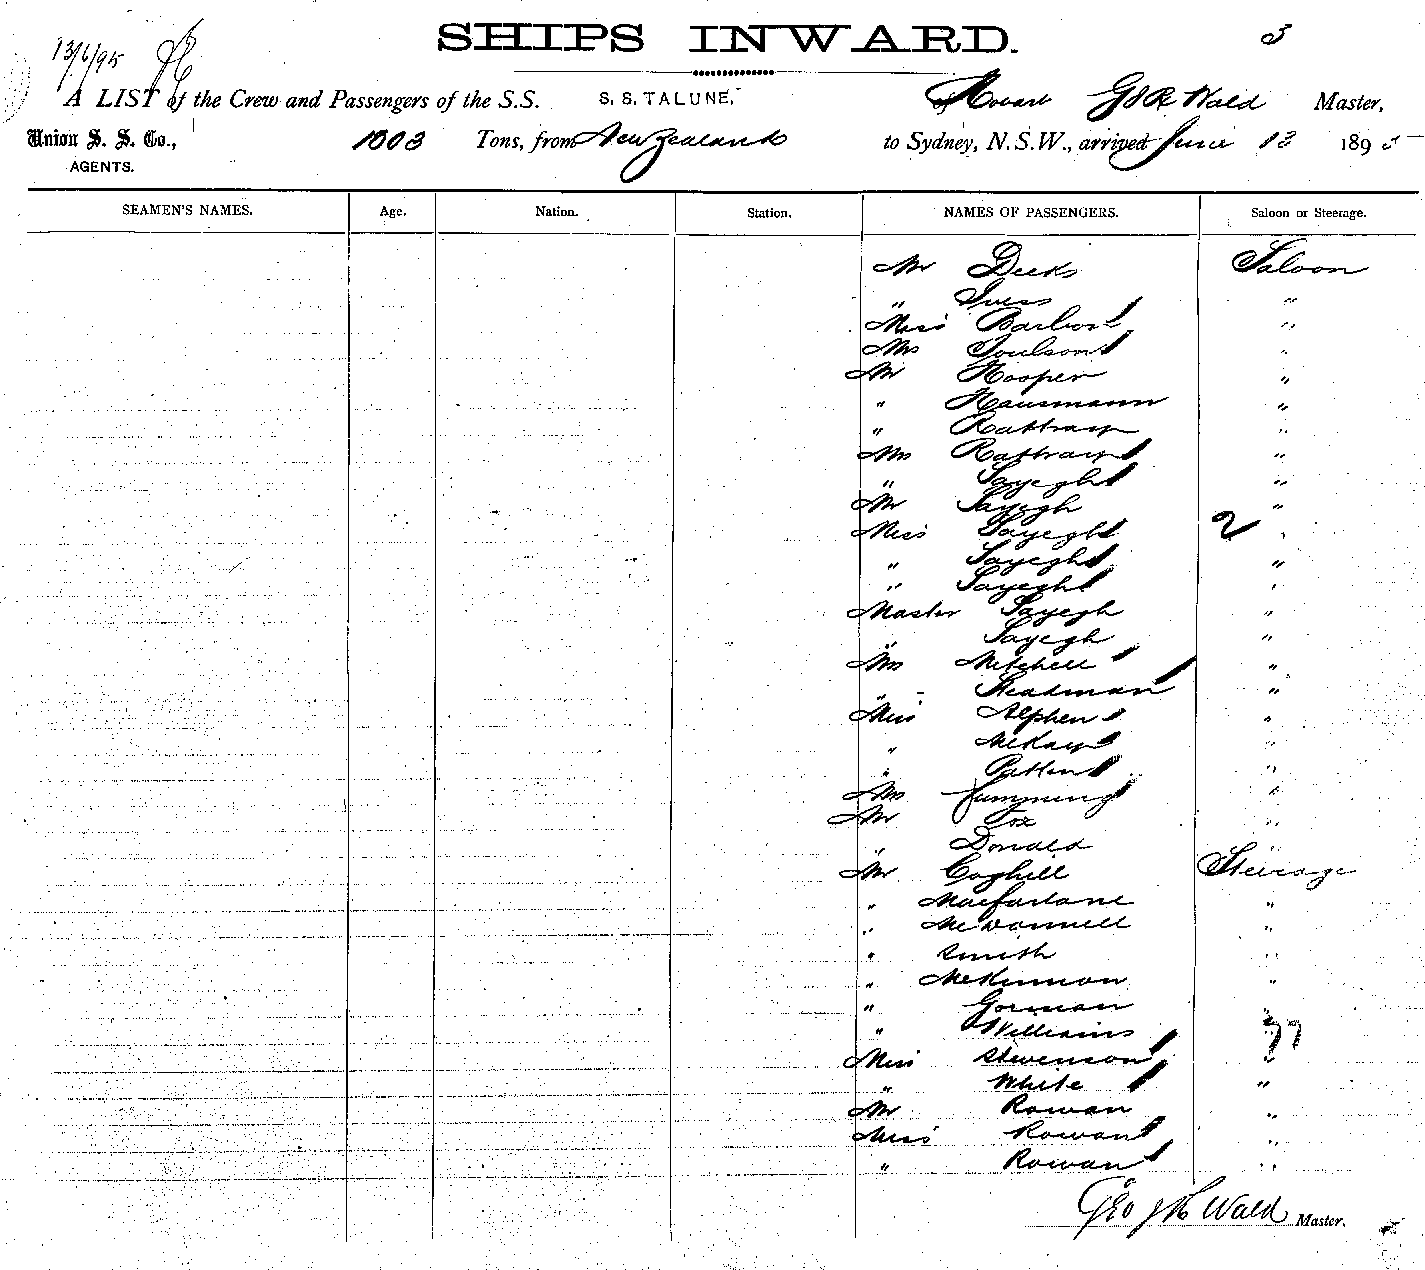 SHIPS INWARD.
3
13/6/95
A LIST of the Crew and Passengers of the S.S. S. S. TALUNE, of Hobart G J R Wald Master,
Union S. S. Co., 1303 Tons, from New Zealand to Sydney, N.S.W., arrived June 13 1895
AGENTS.
SEAMEN'S NAMES. Age. Nation. Station. NAMES OF PASSENGERS. Saloon or Steerage.
Mr Deeks Saloon
" Ivess "
Miss Barbor "
Mrs Poulson "
Mr Hooper "
" Hausmann "
" Rattray "
Mrs Rattray "
" Sayegh "
Mr Sayegh "
Miss Sayegh 2 "
" Sayegh "
" Sayegh "
Master Sayegh "
" Sayegh "
Mrs Mitchell "
" Steadman "
Miss Alphen "
" McKay "
" Patten "
Mrs Cumming "
Mr Fox "
" Donald "
Mr Coghill Steerage
" Macfarlane "
" McDonnell "
" Smith "
" McKinnon "
" Gorman "
" Williams "
Miss Stevenson "
" White "
Mr Rowan "
Miss Rowan "
" Rowan "
Geo J R Wald Master.